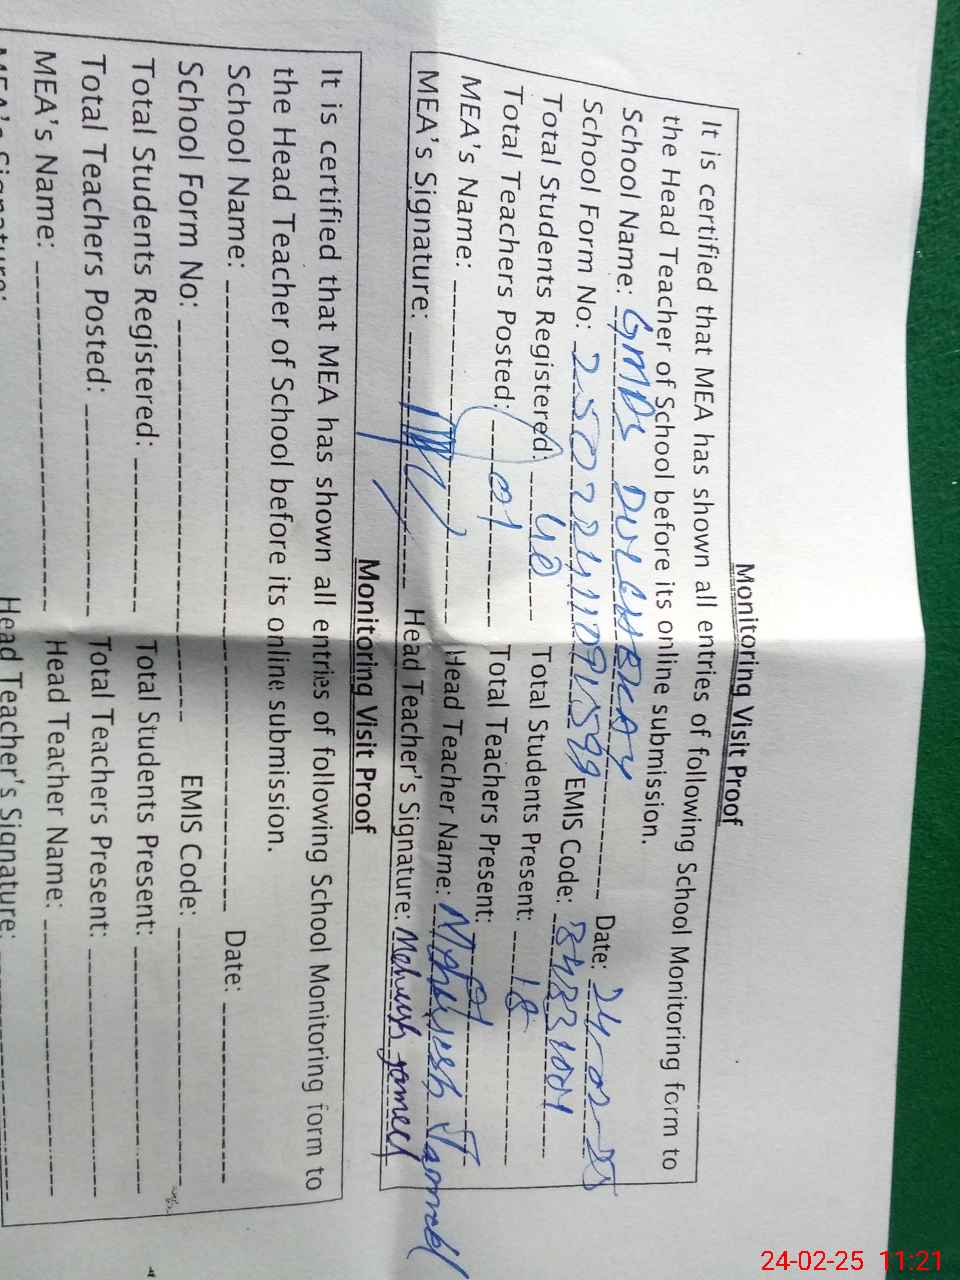 Monitoring Visit Proof
It is certified that MEA has shown all entries of following School Monitoring form to
the Head Teacher of School before its online submission.
School Name: GMPS Date: 24-02-25
School Form No: EMIS Code:
Total Students Registered: 40 Total Students Present: 18
Total Teachers Posted: 01 Total Teachers Present: 01
MEA's Name: Head Teacher Name: Mehwish Jameel
MEA's Signature: Head Teacher's Signature: Mehwish Jameel
Monitoring Visit Proof
It is certified that MEA has shown all entries of following School Monitoring form to
the Head Teacher of School before its online submission.
School Name: Date:
School Form No: EMIS Code:
Total Students Registered: Total Students Present:
Total Teachers Posted: Total Teachers Present:
MEA's Name: Head Teacher Name:
MEA's Signature: Head Teacher's Signature:
24-02-25 11:21